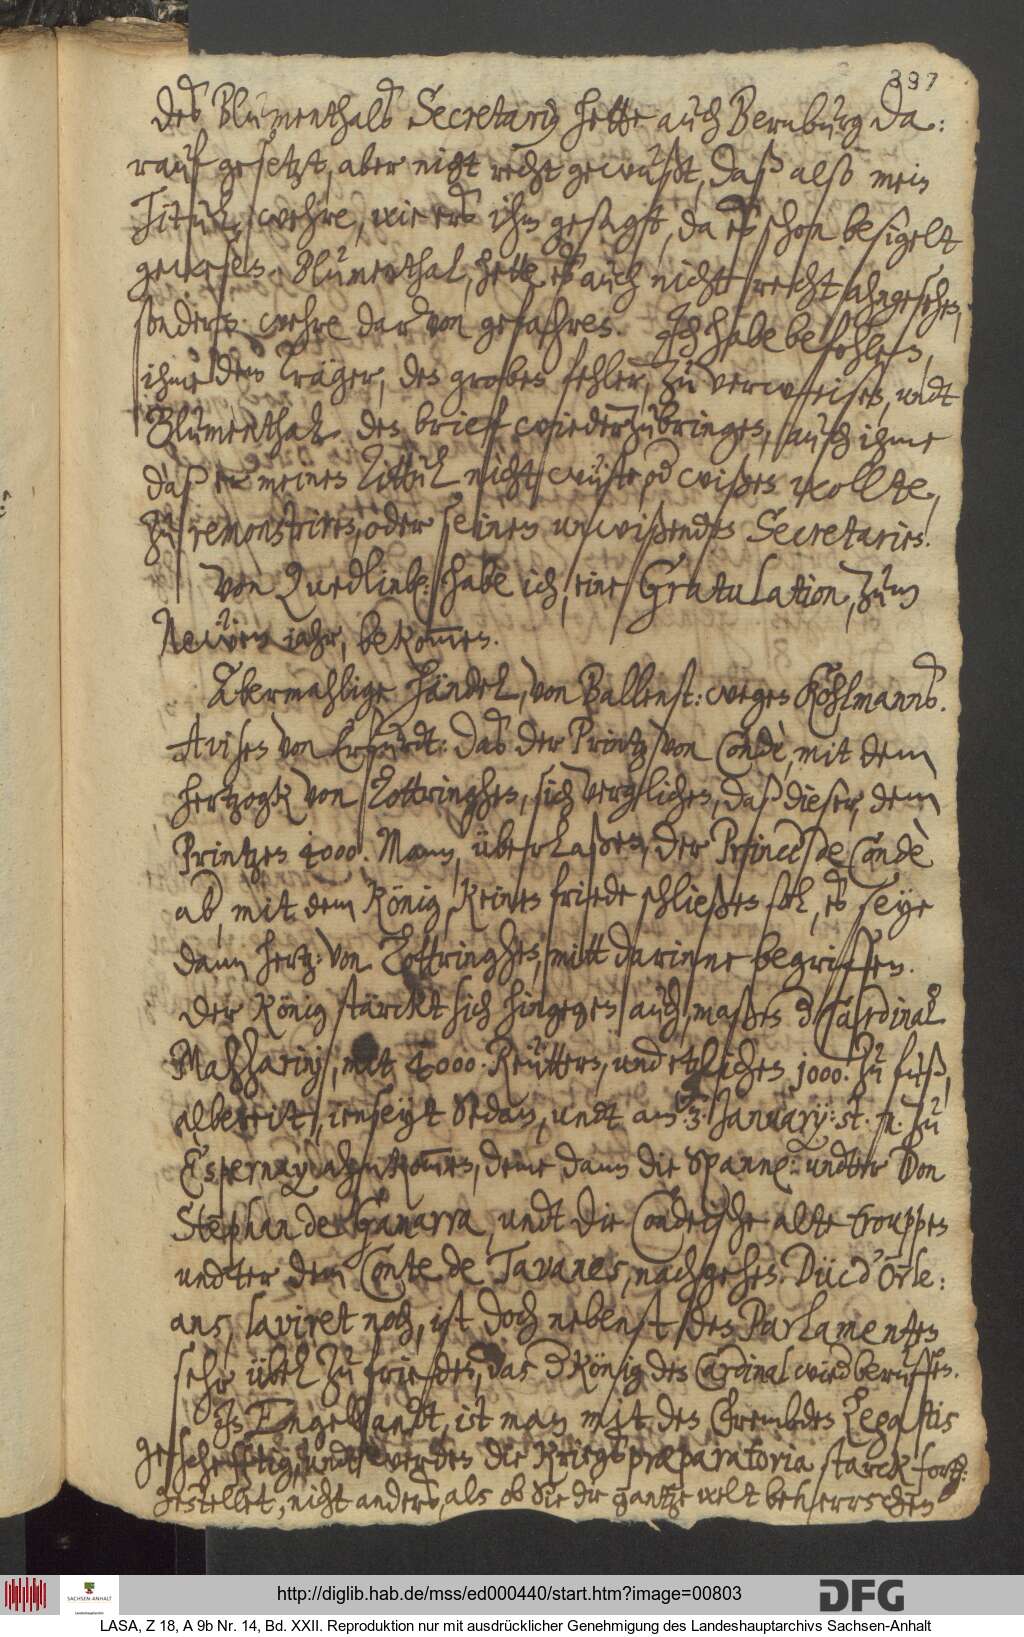 397
des Blumenthals Secretarius hette auch Bernburg da:
rauf gesetzt, aber nicht recht gewußt, daß also mein
Titul, wehre, wie ers ihm gesagt, da es schon besigelt
gewesen. Blumenthal, hette es auch nicht recht angesehen,
sondern wehre darvon gefahren. Ich habe befohlen,
ihme dem Träger, den groben fehler, zu verweisen, undt
Blumenthaln den brieff wiederzubringen, auch ihme
daß er meinen Tittul nicht wüste od wißen wollte,
zu remonstriren, oder seinen unwißenden Secretarien.
Von Quedlinb: habe ich, eine Gratulation, zum
Newen jahr, bekommen.
Abermahlige händel, von Ballenst: wegen Kohlmanns.
Avisen von Erfurdt: das der Printz von Condè, mit dem
Hertzogk von Lottringhen, sich verglichen, daß dieser, dem
Printzen 4000. Mann, überlaßen, der Prince de Condè
ab, mit dem König, keinen friede schließen sol, es seye
dann hertz: von Lottringhen, mitt darinne begriffen.
Der König stärckt sich hingegen auch, maßen d Cardinal
Mazzarinj, mit 4000. Reüttern, und etzlichen 1000. zu fuß,
albereitt, ienseytt Sedan, undt am 3. January: st. n. zu
Espernay ahnkommen, deme dann die Spannl: undter Don
Stephan de Gamarra, undt die Condeische alte trouppen
undter dem Conte de Tavanes, nachgehen. Düc d'Orle:
ans, laviret noch, ist doch nebenst des Parlamentes
sehr übel zu frieden, das d König den Cardinal wied beruffen.
In Engellandt, ist man mit den frembden Legatis
gescheftig, undt werden die Kriegs præparatoria starck fort:
gestellet, nicht anders, als ob sie die gantze welt beherrschen
http://diglib.hab.de/mss/ed000440/start.htm?image=00803
SACHSEN-ANHALT
Landeshauptarchiv
DFG
LASA, Z 18, A 9b Nr. 14, Bd. XXII. Reproduktion nur mit ausdrücklicher Genehmigung des Landeshauptarchivs Sachsen-Anhalt